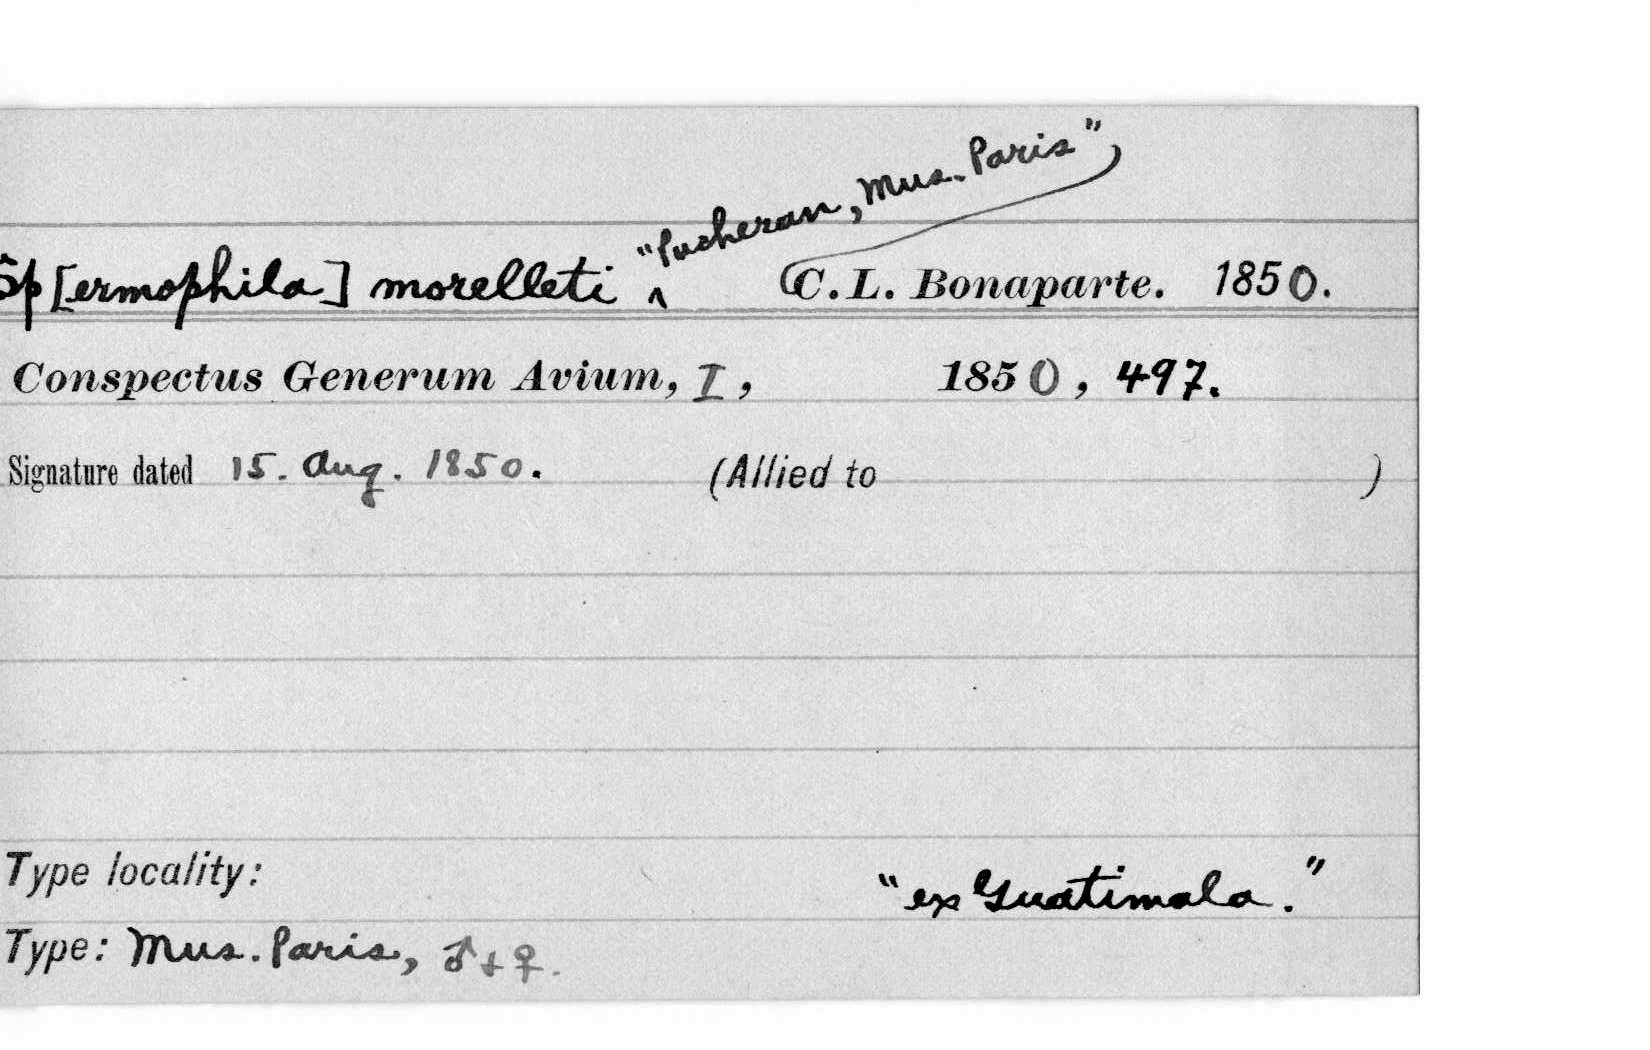 Sp[ermophila] morelleti ‸ "Pucheran, Mus. Paris" C. L. Bonaparte. 1850.
Conspectus Generum Avium, I, 1850, 497.
Signature dated 15. Aug. 1850. (Allied to )
Type locality: "ex Guatimala."
Type: Mus. Paris, ♂ + ♀.